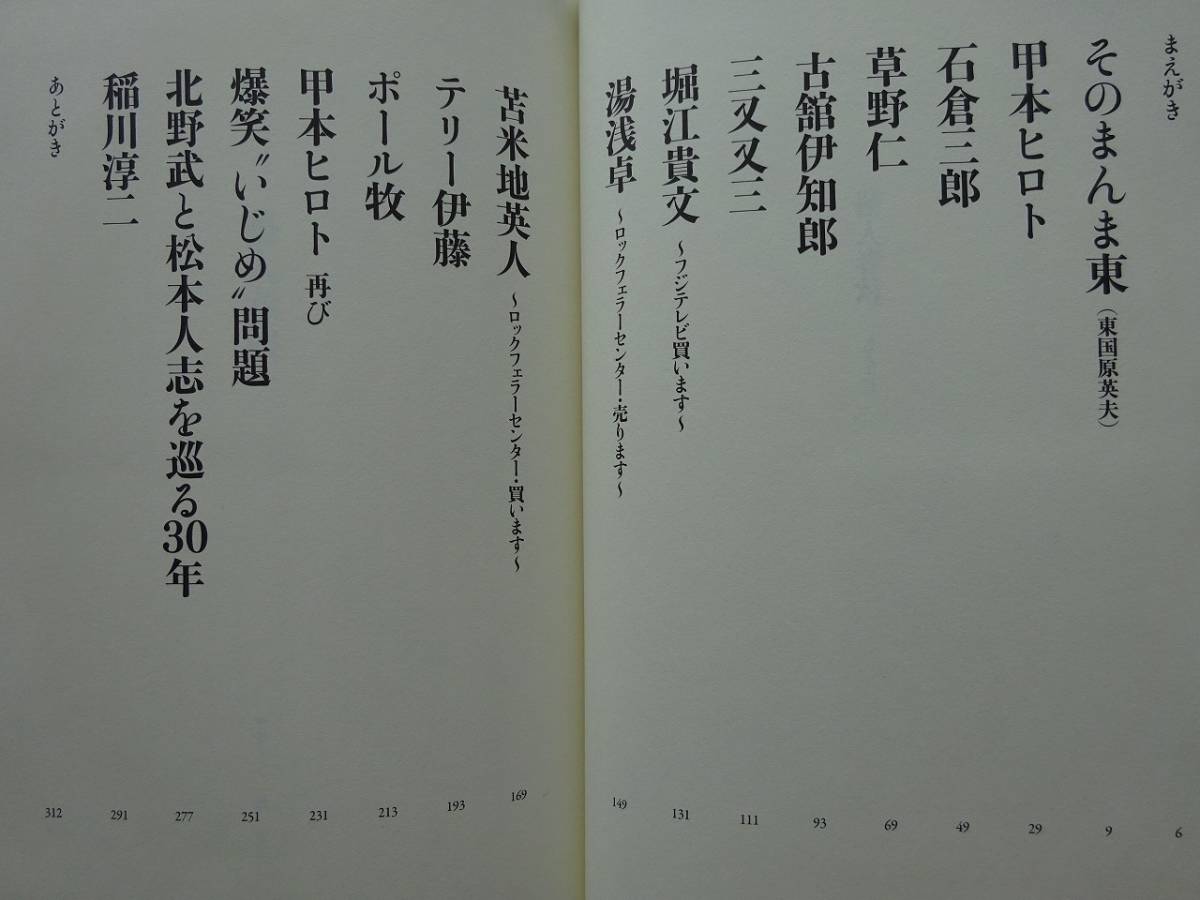 まえがき 6
そのまんま東（東国原英夫） 9
甲本ヒロト 29
石倉三郎 49
草野仁 69
古舘伊知郎 93
三又又三 111
堀江貴文 ～フジテレビ買います～ 131
湯浅卓 ～ロックフェラーセンター・売ります～ 149
苫米地英人 ～ロックフェラーセンター・買います～ 169
テリー伊藤 193
ポール牧 213
甲本ヒロト 再び 231
爆笑〝いじめ〟問題 251
北野武と松本人志を巡る30年 277
稲川淳二 291
あとがき 312